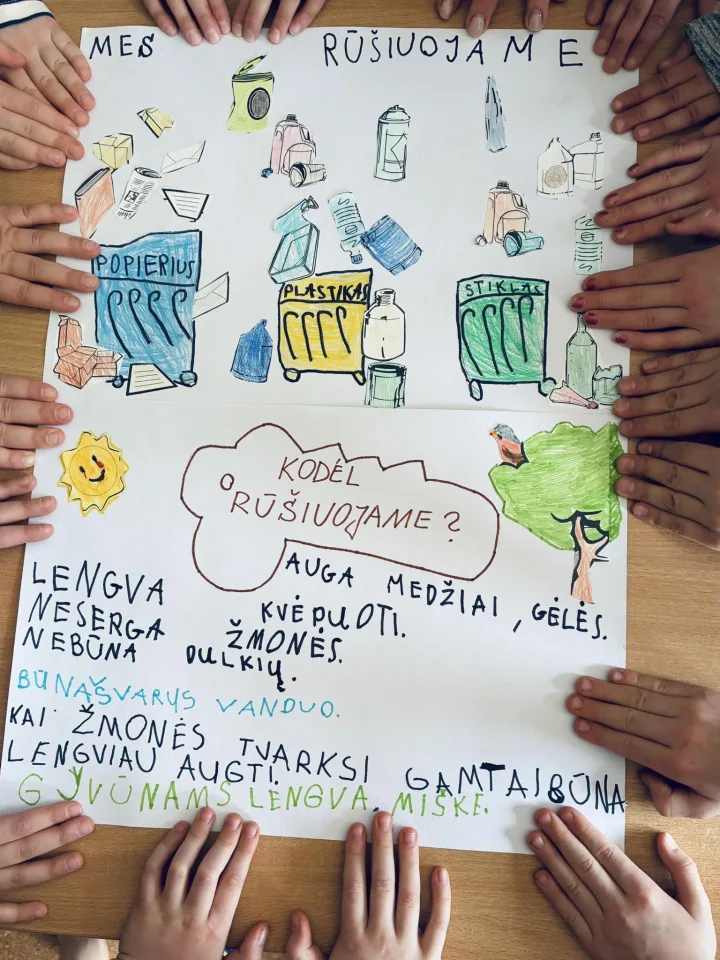 MES RŪŠIUOJAME
POPIERIUS
PLASTIKAS
STIKLAS
KODĖL
RŪŠIUOJAME?
AUGA MEDŽIAI, GĖLĖS.
LENGVA KVĖPUOTI.
NESERGA ŽMONĖS.
NEBŪNA DULKIŲ.
BŪNA ŠVARUS VANDUO.
KAI ŽMONĖS TVARKSI GAMTAI BŪNA
LENGVIAU AUGTI.
GYVŪNAMS LENGVA MIŠKE.